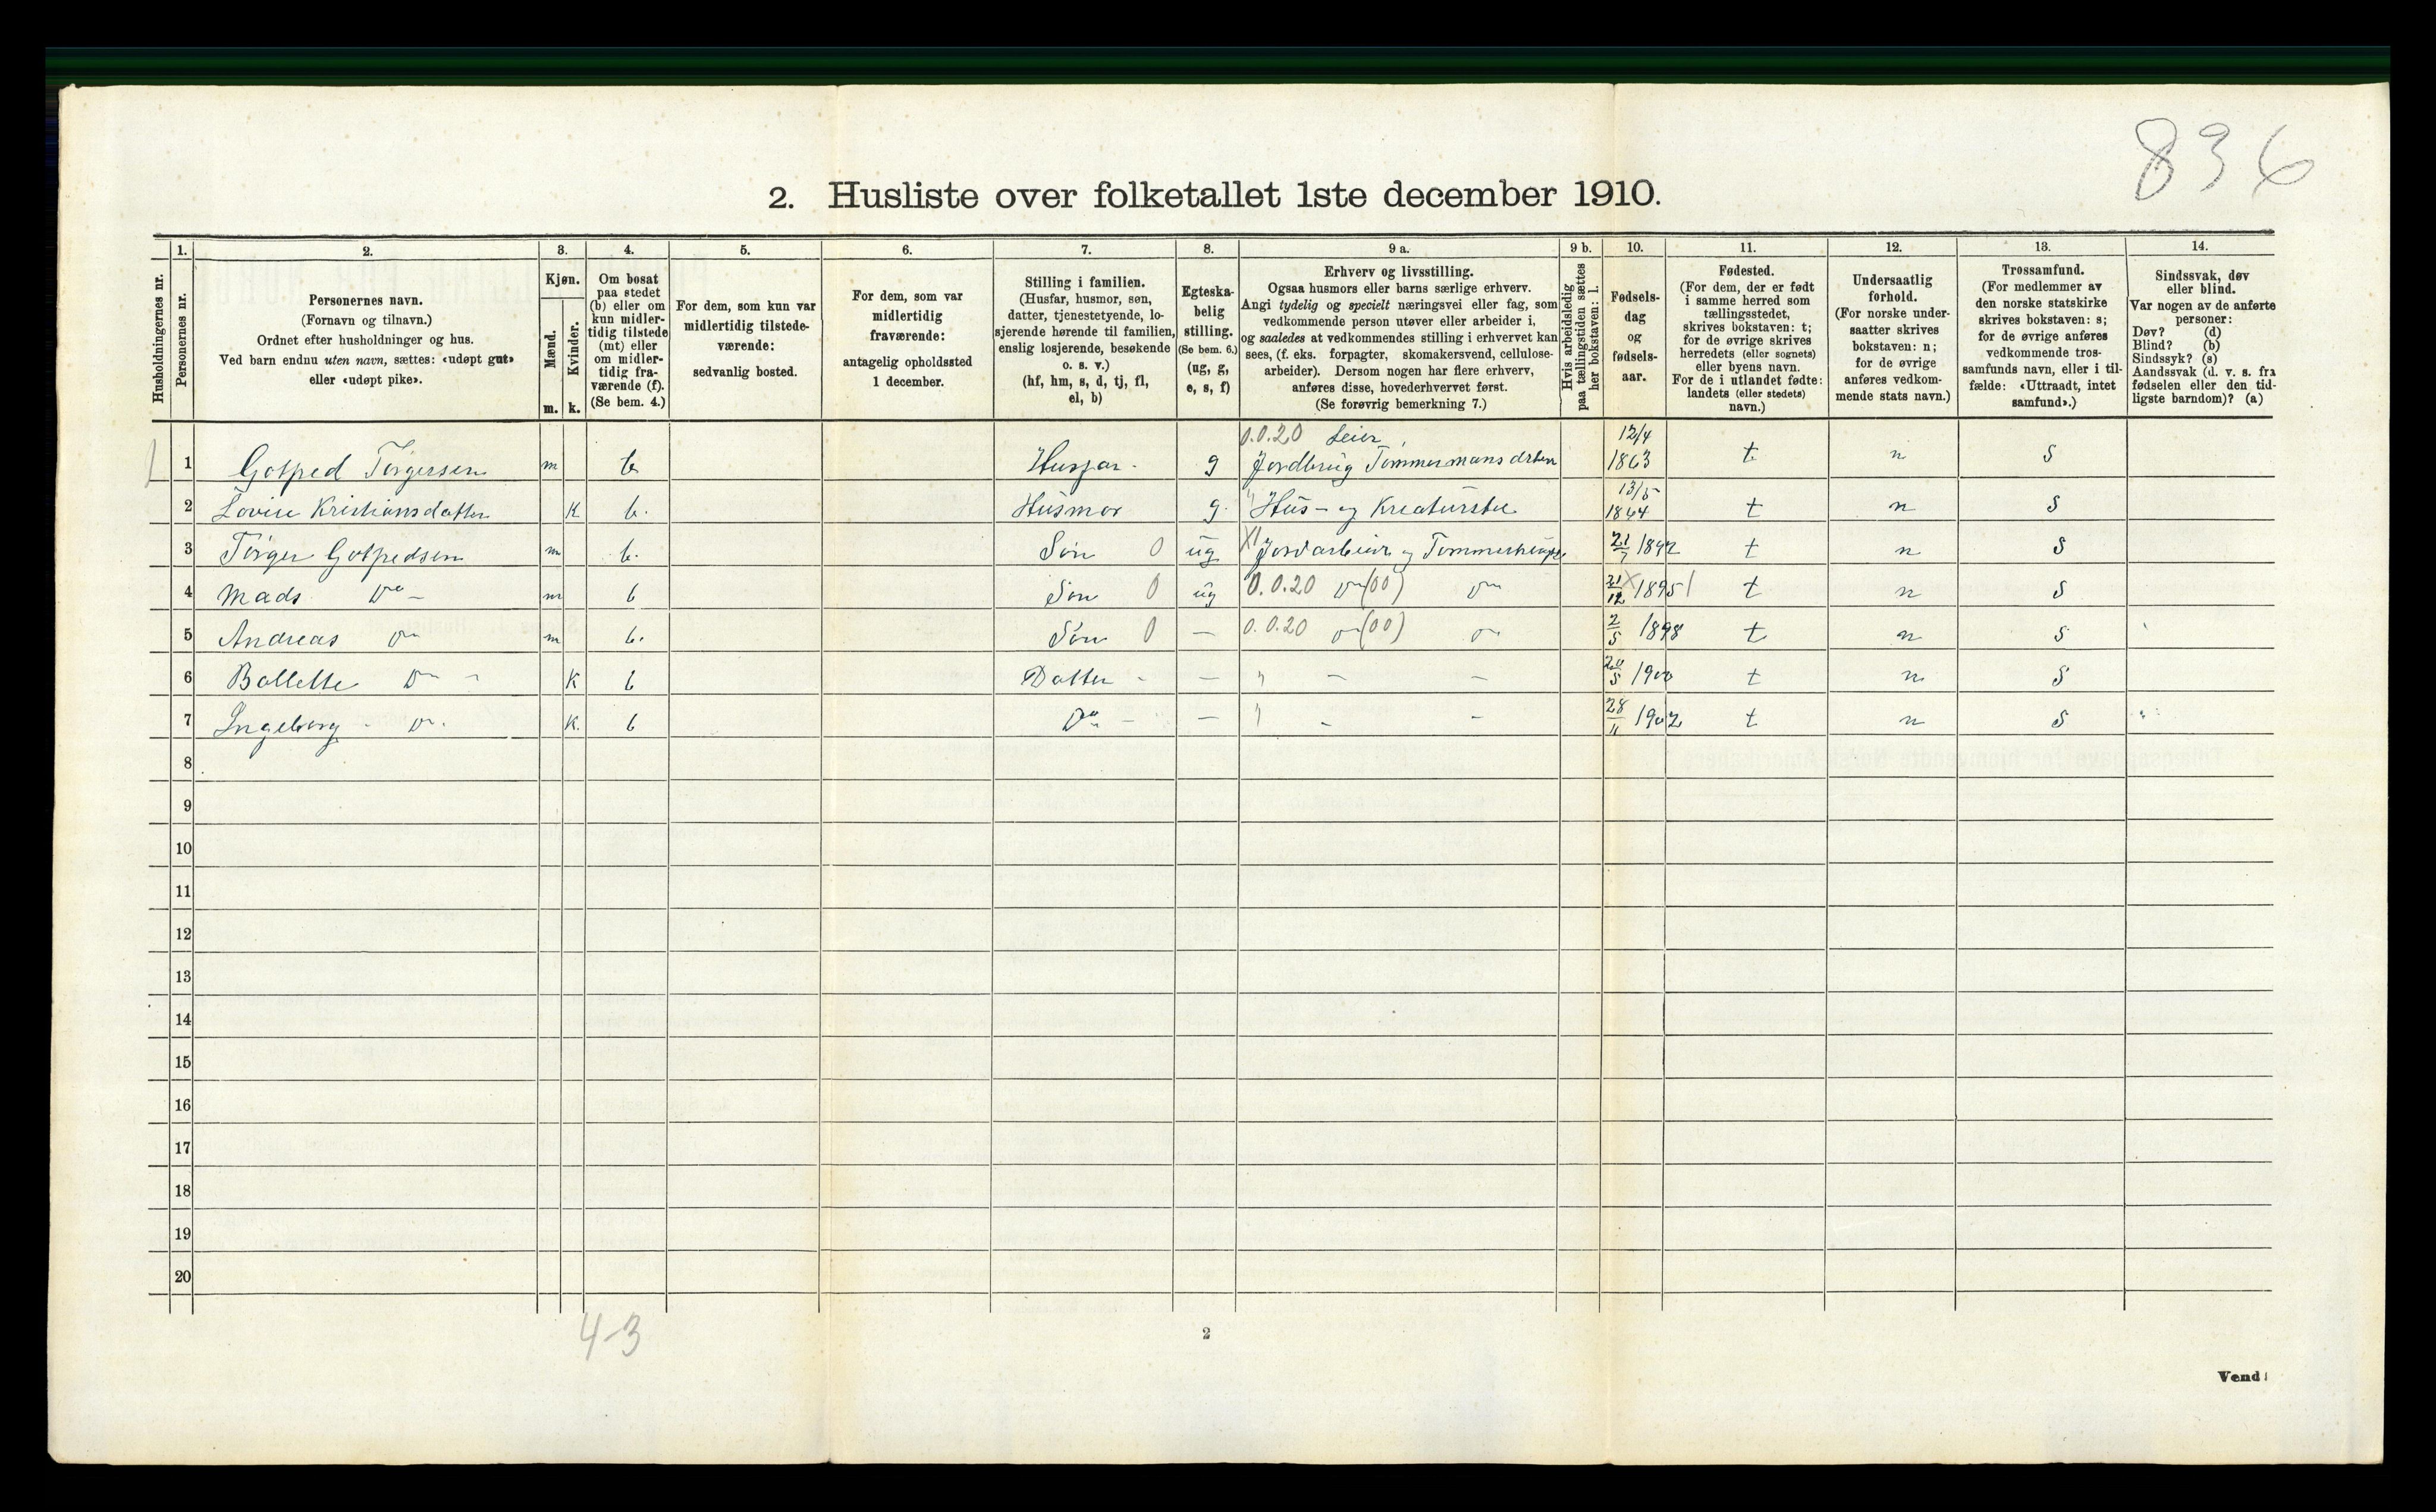 836
2. Husliste over folketallet 1ste december 1910.
Husholdningernes nr.
1.
Personernes nr.
2.
Personernes navn.
(Fornavn og tilnavn.)
Ordnet efter husholdninger og hus.
Ved barn endnu uten navn, sættes: «udøpt gut»
eller «udøpt pike».
3.
Kjøn.
Mænd.
Kvinder.
m. k.
4.
Om bosat
paa stedet
(b) eller om
kun midler-
tidig tilstede
(mt) eller
om midler-
tidig fra-
værende (f).
(Se bem. 4.)
5.
For dem, som kun var
midlertidig tilstede-
værende:
sedvanlig bosted.
6.
For dem, som var
midlertidig
fraværende:
antagelig opholdssted
1 december.
7.
Stilling i familien.
(Husfar, husmor, søn,
datter, tjenestetyende, lo-
sjerende hørende til familien,
enslig losjerende, besøkende
o. s. v.)
(hf, hm, s, d, tj, fl,
el, b)
8.
Egteska-
belig
stilling.
(Se bem. 6.)
(ug, g,
e, s, f)
9 a.
Erhverv og livsstilling.
Ogsaa husmors eller barns særlige erhverv.
Angi tydelig og specielt næringsvei eller fag, som
vedkommende person utøver eller arbeider i,
og saaledes at vedkommendes stilling i erhvervet kan
sees, (f. eks. forpagter, skomakersvend, cellulose-
arbeider). Dersom nogen har flere erhverv,
anføres disse, hovederhvervet først.
(Se forøvrig bemerkning 7.)
9 b.
Hvis arbeidsledig
paa tællingstiden sættes
her bokstaven: l.
10.
Fødsels-
dag
og
fødsels-
aar.
11.
Fødested.
(For dem, der er født
i samme herred som
tællingsstedet,
skrives bokstaven: t;
for de øvrige skrives
herredets (eller sognets)
eller byens navn.
For de i utlandet fødte:
landets (eller stedets)
navn.)
12.
Undersaatlig
forhold.
(For norske under-
saatter skrives
bokstaven: n;
for de øvrige
anføres vedkom-
mende stats navn.)
13.
Trossamfund.
(For medlemmer av
den norske statskirke
skrives bokstaven: s;
for de øvrige anføres
vedkommende tros-
samfunds navn, eller i til-
fælde: «Uttraadt, intet
samfund».)
14.
Sindssvak, døv
eller blind.
Var nogen av de anførte
personer:
Døv? (d)
Blind? (b)
Sindssyk? (s)
Aandssvak (d. v. s. fra
fødselen eller den tid-
ligste barndom)? (a)
0.0.20 Leier 12/4
1 1 Gotfred Torgersen m b. Husfar g Jordbrug Tømmermans 1863 t n s
13/5
2 Lovise Kristiansdatter k b. Husmor g. Hus- og Kreaturstel 1864 t n s
3 Torger Gotfredsen m b. Søn 0 ug Jordarbeide og 21/7 1892 t n s
4 Mads Do m b Søn 0 ug 0.0.20 Do (00) Do 31/12 1895 t n s
5 Andreas Do m b. Søn 0 — 0.0.20 Do (00) Do 2/5 1898 t n s
6 Bollette Do k b Datter — " — — 20/5 1900 t n s
7 Ingeborg Do k. b Do — — " — — 28/11 1902 t n s
8
9
10
11
12
13
14
15
16
17
18
19
20
4-3
2
Vend!